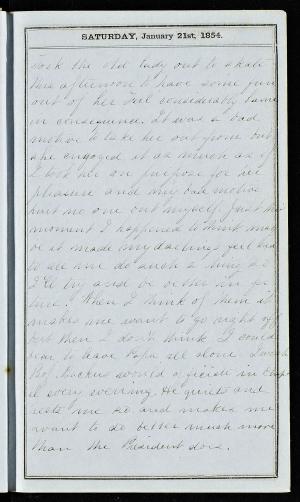 SATURDAY, January 21st, 1854.
took the old lady out to skate
this afternoon to have some fun
out of her. Feel considerably lame
in consequence. It was a bad
motive to take her out from but
she enjoyed it as much as if
I took her on purpose for her
pleasure and my bad motive
hurt no one but myself. Just this
moment I happened to think may
be it made my darlings feel bad
to see me do such a thing so
I'll try and be better in fu
ture. When I think of them it
makes me want to go right off
but then I don't think I could
bear to leave Papa all alone. I wish
Prof. would officiate in Chap
el every evening. He quiets and
rests me so and makes me
want to do better much more
than the President does.